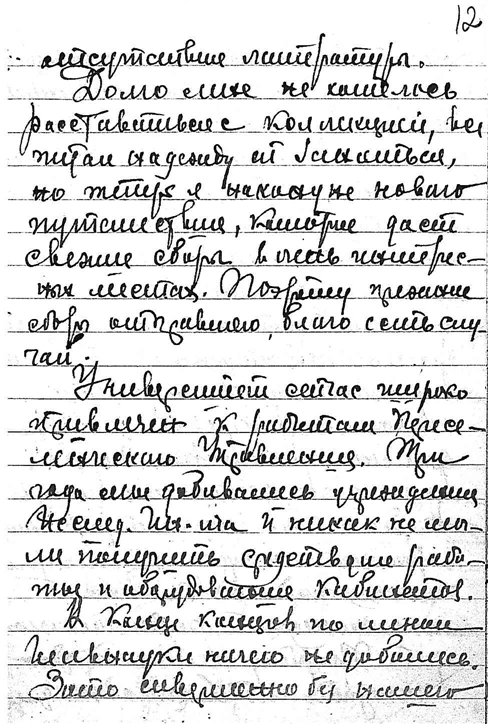 12
отсутствие литературы.
Долго мне не хотелось
расставаться с коллекцией, все
питал надежду ей заняться,
но теперь я накануне нового
путешествия, которое даст
свежие сборы в очень интерес-
ных местах. Поэтому прежние
сборы отправляю, благо есть слу-
чай.
Университет сейчас широко
привлечен к работам Пересе-
ленческого Управления. Три
года мы добивались учреждения
Исслед. Ин-та и никак не мог-
ли получить средств для рабо-
ты и оборудования кабинетов.
В конце концов по линии
Главнауки ничего не добились.
Зато совершенно без нашего